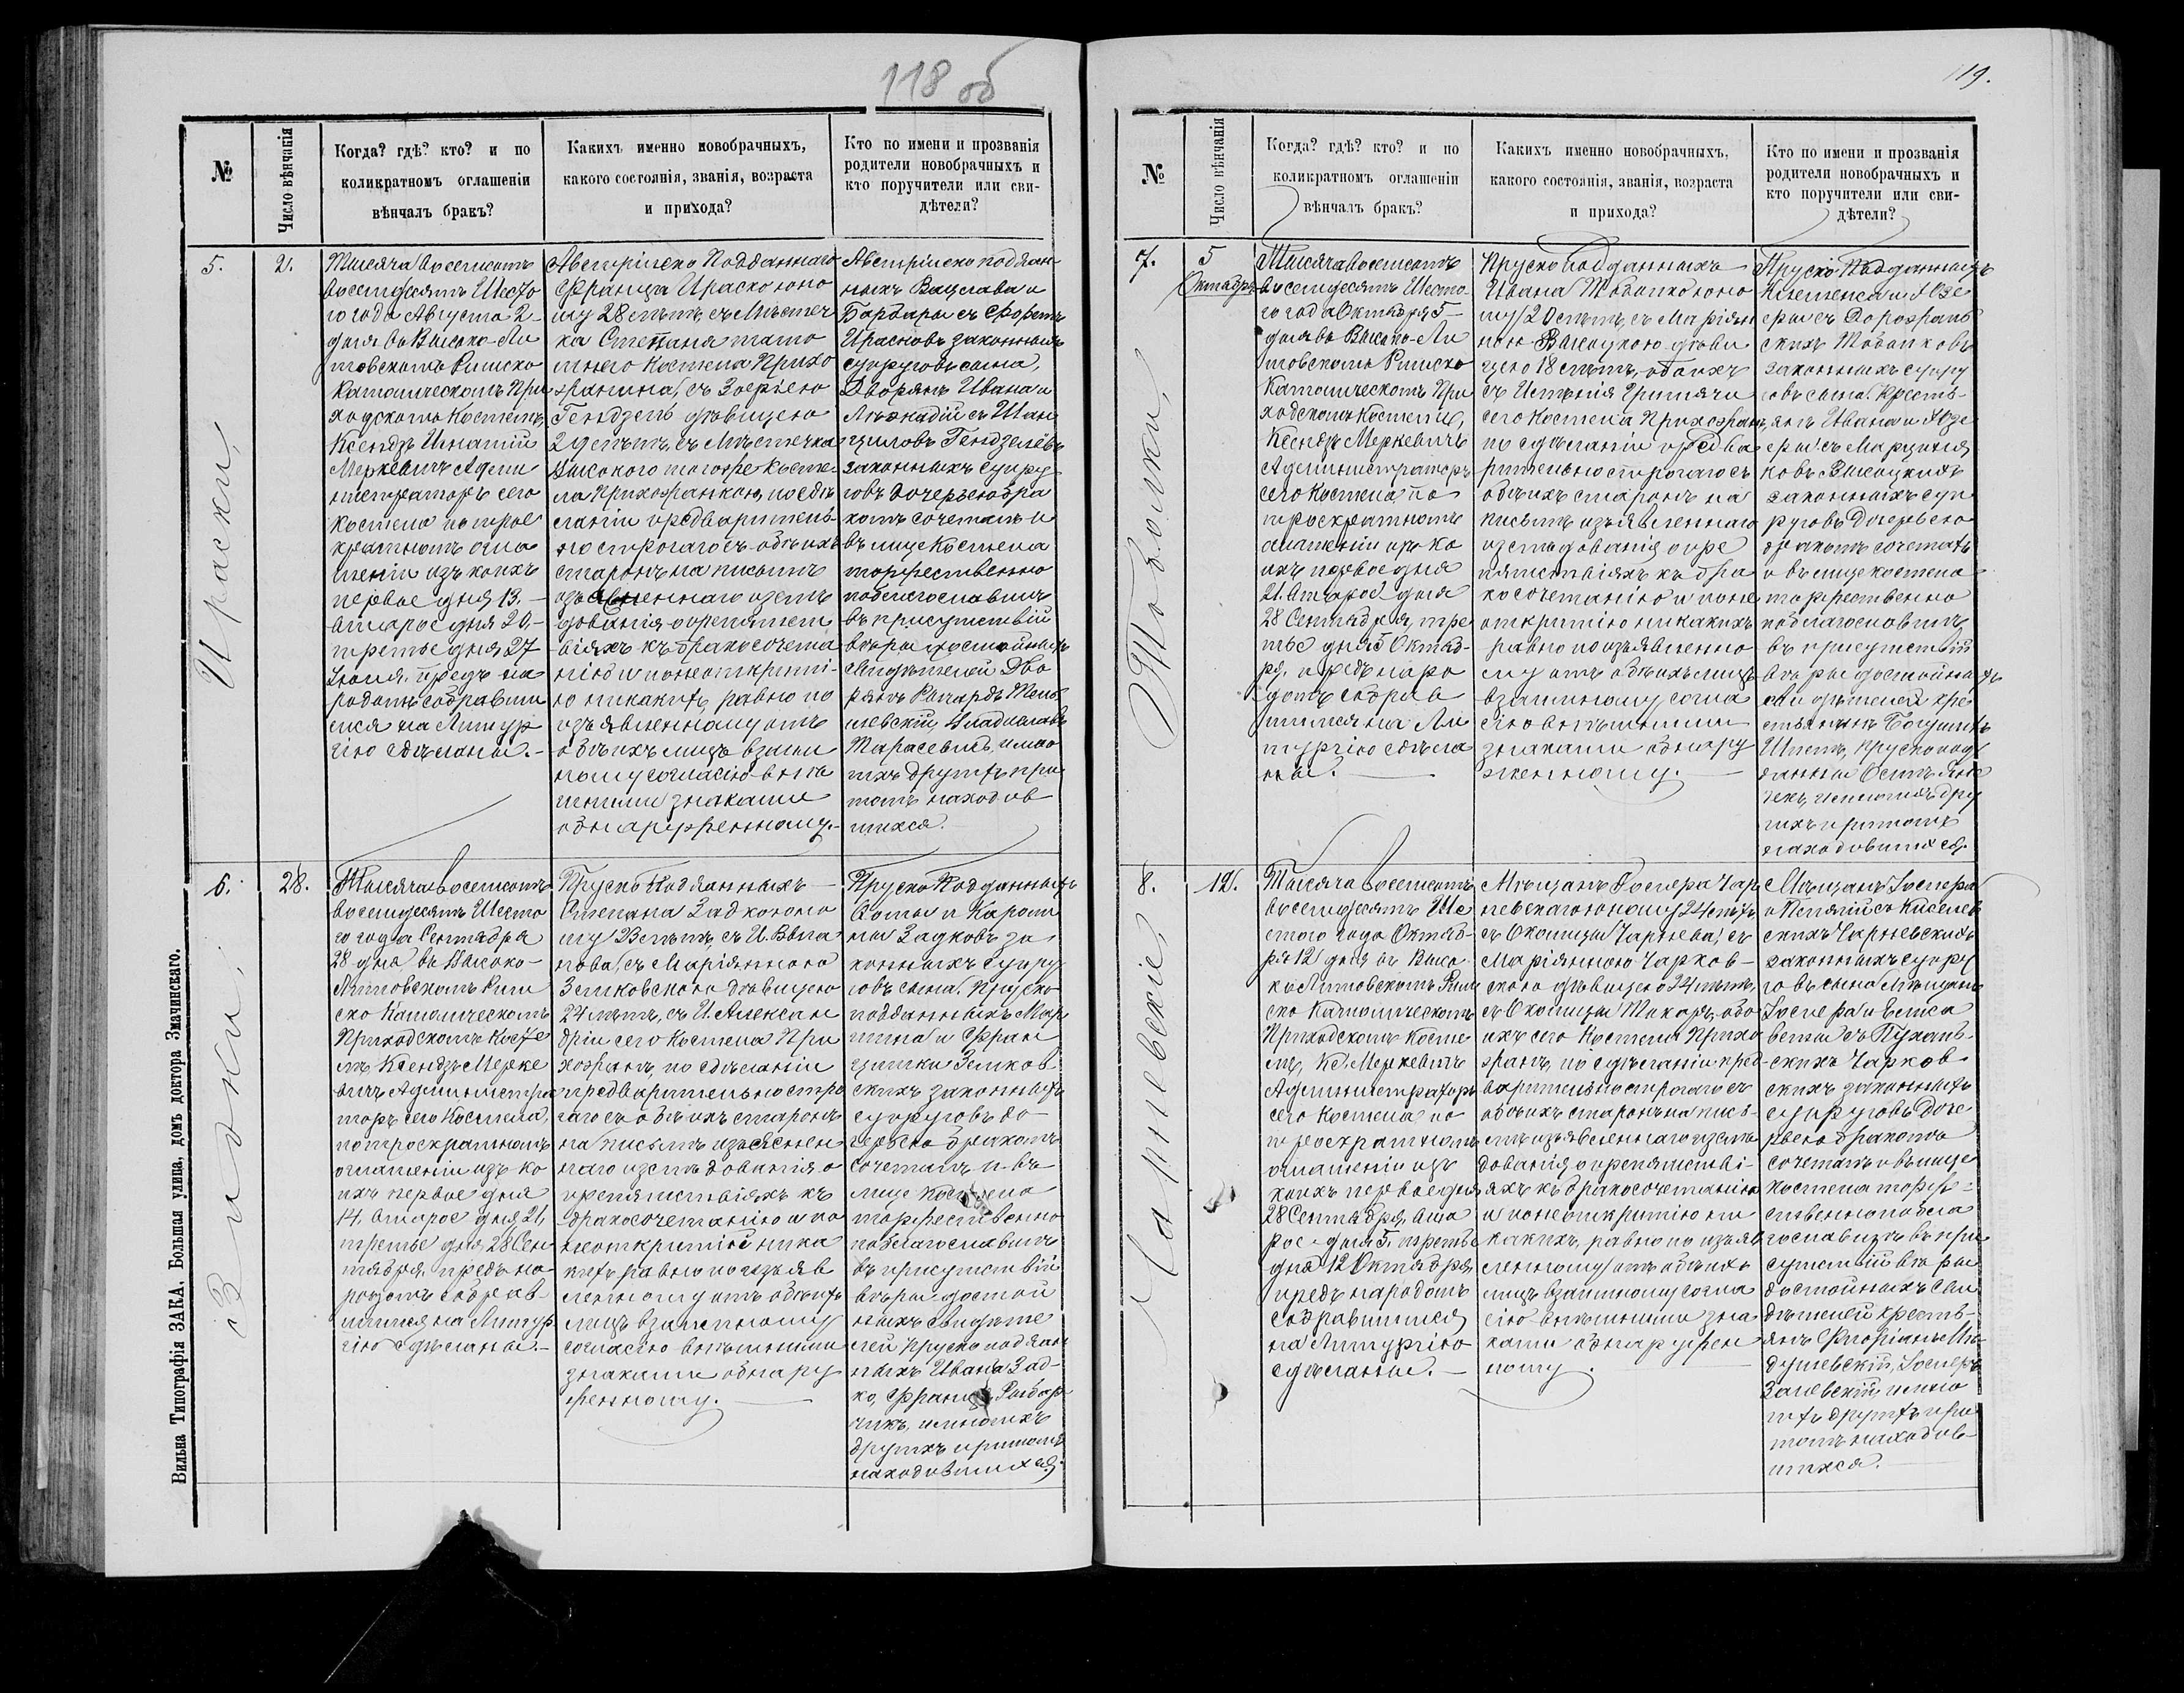 118 об
№
Число вѣнчанія
Когда? гдѣ? кто? и по
коликратномъ оглашеніи
вѣнчалъ бракъ?
Какихъ именно новобрачныхъ,
какого состоянія, званія, возраста
и прихода?
Кто по имени и прозванія
родители новобрачныхъ и
кто поручители или сви-
дѣтели?
5.
2.
Ираски,
Тысяча восемсотъ
восемдесятъ Шесто
го года Августа 2-
дня въ Высоко-Ли
товскомъ Римско
Католическомъ При
ходскомъ Костелѣ,
Ксендзъ Игнатій
Меркевичъ Адми
нистраторъ сего
Костела по трое
кратномъ огла
шеніи изъ коихъ
первое дня 13.-
второе дня 20,-
третье дня 27
Іюля, предъ на
родомъ собравши
мся на Литур
гію сдѣланы.-
Австрійско Подданнаго
Франца Ираско юно
шу 28 лѣтъ, съ Мѣстеч
ка
тнего Костела Прихо
жанина, съ Зофіею
Гендзель дѣвицею
2 лѣтъ, съ Мѣстечка
Высокого тогоже Косте-
ла Прихожанкою, по сдѣ
ланіи предваритель-
но строгаго съ обѣихъ
старонъ на письмѣ
изъявленнаго изслѣ
дованія о препятст
віяхъ къ бракосочета
нію и понеоткриті-
ю никакихъ, равно по
изъявленному отъ
обѣихъ лицъ взаим
ному согласію внѣ
шними знаками
обнаруженному.-
Австрійско поддан-
ныхъ Вацлава и
Барбары съ
Ирасковъ законныхъ
супруговъ сына,
Дворянъ Ивана и
Леокадіи съ Шан
Гендзелёвъ
законныхъ супру
говъ дочерью бра
комъ сочеталъ и
въ лице Костела
торжественно
поблагословилъ
въ присутствіи
вѣры достойныхъ
Свидѣтелей Дво
рянъ
Владиславъ
Тарасевичъ, и мно
гихъ другихъ при
томъ находив
шихся.
6.
28.
Задки.
Тысяча восемсотъ
восемдесятъ Шесто
го года Сентября
28 дня въ Высоко-
Литовскомъ Рим
ско Католическомъ
Приходскомъ Косте
лѣ Ксендзъ Мерке
вичъ Администра
торъ сего Костела,
по троекратномъ
оглашеніи изъ ко
ихъ первое дня
14, второе дня 21,
третье дня 28 Сен
тября, предъ на-
родомъ собрав-
шимся на Литур
гію сдѣланы.-
Пруско Подданныхъ
Степана Задко юно
шу
съ Маріянною
Земковскою дѣвицею
24 лѣтъ, съ И. Алексан
дріи сего Костела При
хожанъ, по сдѣланіи
предварительно стро
гаго съ обѣихъ старонъ
на письмѣ изъяснен
наго изслѣдованія о
препятствіяхъ къ
бракосочетанію и по
неоткритію ника
кихъ равно по изъяв
ленному отъ обѣихъ
лицъ взаимному
согласію внѣшними
знаками обнару
женному.
Пруско Подданныхъ
Фомы и Кароли
ны Задковъ за
конныхъ супру
говъ сына. Пруско
подданныхъ Мар
тина и Фран
цишки Земков
скихъ законныхъ
супруговъ до-
черью бракомъ
сочеталъ и въ
лице Костела
торжественно
поблагословилъ
въ присутствіи
вѣры достой
ныхъ Свидѣте
лей Пруско поддан
ныхъ Ивана Зад-
ко, Франца Рыбар
чикъ, и многихъ
другихъ притомъ
находившихся.
Вильна Типографія ЗАКА. Большая улица, домъ доктора Змачинскаго.
119.
№
Число вѣнчанія
Когда? гдѣ? кто? и по
коликратномъ оглашеніи
вѣнчалъ бракъ?
Какихъ именно новобрачныхъ,
какого состоянія, званія, возраста
и прихода?
Кто по имени и прозванія
родители новобрачныхъ и
кто поручители или сви-
дѣтели?
7.
5
Октября
Тоболки,
Тысяча восемсотъ
восемдесятъ Шесто
го года Октября 5-
дня въ Высоко-Ли
товскомъ Римско
Католическомъ При
ходскомъ Костелѣ,
Ксендзъ Меркевичъ
Администраторъ
сего Костела, по
троекратномъ
оглашеніи изъ ко
ихъ первое дня
21. второе дня
28 Сентября, тре
тье дня 5 Октяб-
ря, предъ наро
домъ собрав
шимся на Ли
тургію сдѣла
ны.
Пруско подданныхъ
Ивана Тоболко юно
шу 20 лѣтъ, съ Маріян
ною Высоцкою дѣви
цею 18 лѣтъ, обоихъ
съ Имѣнія
сего Костела Прихожанъ
по сдѣланіи предва
рительно строгаго съ
обѣихъ старонъ на
письмѣ изъявленнаго
изслѣдованія о пре
пятствіяхъ къ бра
косочетанію и поне
откритію никакихъ
равно по изъявленно
му отъ обѣихъ лицъ
взаимному согла
сію внѣшними
знаками обнару
женному.
Пруско Подданныхъ
Клеменса и Юзе
фы съ
скихъ Тоболковъ
законныхъ супру
говъ сына. Кресть-
янъ Ивана и Юзе
фы съ Марциня
ковъ Высоцкихъ
законныхъ суп
руговъ дочерью
бракомъ сочеталъ
и въ лице костела
торжественно
поблагословилъ
въ присутствіи
вѣры достойныхъ
Свидѣтелей кре
стьянинъ
Пруско под
данный
и многихъ дру
гихъ притомъ
находившихся.
8.
12.
Чарневскіе,
Тысяча восемсотъ
восемдесятъ Ше
стого года Октяб-
ря 12 дня въ Высо
ко Литовскомъ Рим
ско Католическомъ
Приходскомъ Косте
лѣ, Кс. Меркевичъ
Администраторъ
сего Костела, по
троекратномъ
оглашеніи изъ
коихъ первое дня
28 Сентября, вто
рое дня 5. третье
дня 12 Октября,
предъ народомъ
собравшимся
на Литургію
сдѣланы.-
Мѣщанъ Іосифа Чар
невскаго юношу 24 лѣтъ,
съ Околицы Чарнева, съ
Маріянною Чарков-
скою дѣвицею 24 лѣтъ,
съ Околицы Токары обо
ихъ сего Костела Прихо
жанъ, по сдѣланіи пред
варительно строгаго съ
обѣихъ старонъ на пись-
мѣ изъявленнаго изслѣ
дованія о препятстві-
яхъ къ бракосочетанію
и понеоткритію ни
какихъ, равно по изъяв
ленному отъ обѣихъ
лицъ взаимному согла
сію внѣшними зна
ками обнаружен
ному.
Мѣщанъ Іосифа
и съ Киселев
скихъ Чарневскихъ
законныхъ супру
говъ сына Мѣщанъ
Іосифа и Елиса
веты съ Пухаль-
скихъ Чарков
скихъ законныхъ
супруговъ доче
рью бракомъ
сочеталъ и въ лице
Костела торже-
ственно побла
гословилъ въ при
сутствіи вѣры
достойныхъ Сви
дѣтелей Кресть-
янъ Флоріанъ
Іосифъ
Залевскій, и мно
гихъ другихъ при
томъ находив-
шихся.